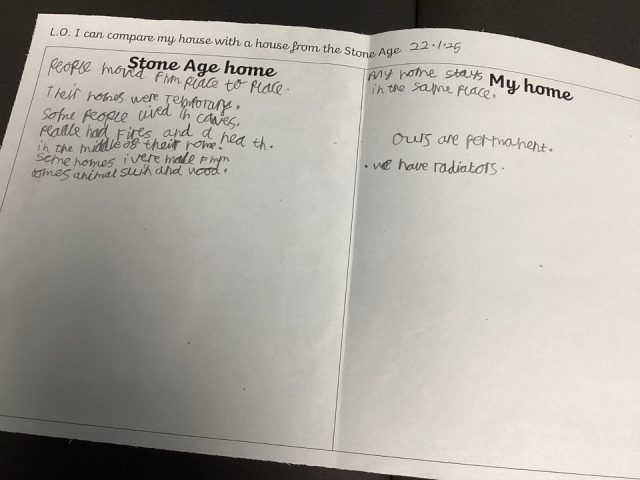 L.O. I can compare my house with a house from the Stone Age 22.1.25
Stone Age home
People moved from place to place.
Their homes were Temporary.
Some people lived in caves.
Peaple had Fires and a hea th.
in the middle of their home.
Some homes were made from
animal skin and wood.
My home
My home stays
in the same place.
Ours are permanent.
. we have radiators.